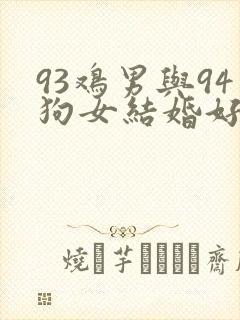 93鸡男與94
狗女結婚好
燒芋齋